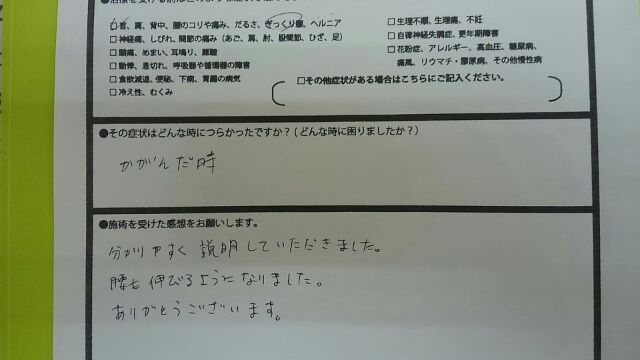 □首、肩、背中、腰のコリや痛み、だるさ、ぎっくり腰、ヘルニア
□神経痛、しびれ、関節の痛み(あご、肩、肘、股関節、ひざ、足)
□頭痛、めまい、耳鳴り、難聴
□動悸、息切れ、呼吸器や循環器の障害
□食欲減退、便秘、下痢、胃腸の病気
□冷え性、むくみ
□生理不順、生理痛、不妊
□自律神経失調症、更年期障害
□花粉症、アレルギー、高血圧、糖尿病、
痛風、リウマチ・膠原病、その他慢性病
□その他症状がある場合はこちらにご記入ください。
●その症状はどんな時につらかったですか?(どんな時に困りましたか?)
かがんだ時
●施術を受けた感想をお願いします。
分かりやすく説明していただきました。
腰も伸びるようになりました。
ありがとうございます。